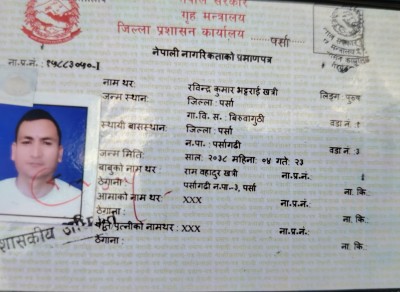 नेपाल सरकार
गृह मन्त्रालय
जिल्ला प्रशासन कार्यालय, पर्सा
नेपाली नागरिकताको प्रमाणपत्र
ना.प्र.नं.:
नाम थर: रविन्द्र कुमार भट्टराई खत्री लिङ्ग: पुरुष
जन्म स्थान: जिल्ला: पर्सा
गा.वि.स.: बिरुवागुठी वडा नं. १
स्थायी बासस्थान: जिल्ला: पर्सा
न.पा.: पर्सागढी वडा नं.: ३
जन्म मिति: साल: २०३८ महिना: ०४ गते: २३
बाबुको नाम थर: राम बहादुर खत्री ना.प्र.नं.:
ठेगाना: पर्सागढी न.पा-३, पर्सा ना. कि:
आमाको नाम थर: XXX ना.प्र.नं.:
ठेगाना: ना. कि:
पत्नीको नामथर: XXX ना.प्र.नं.:
ठेगाना: ना. कि: